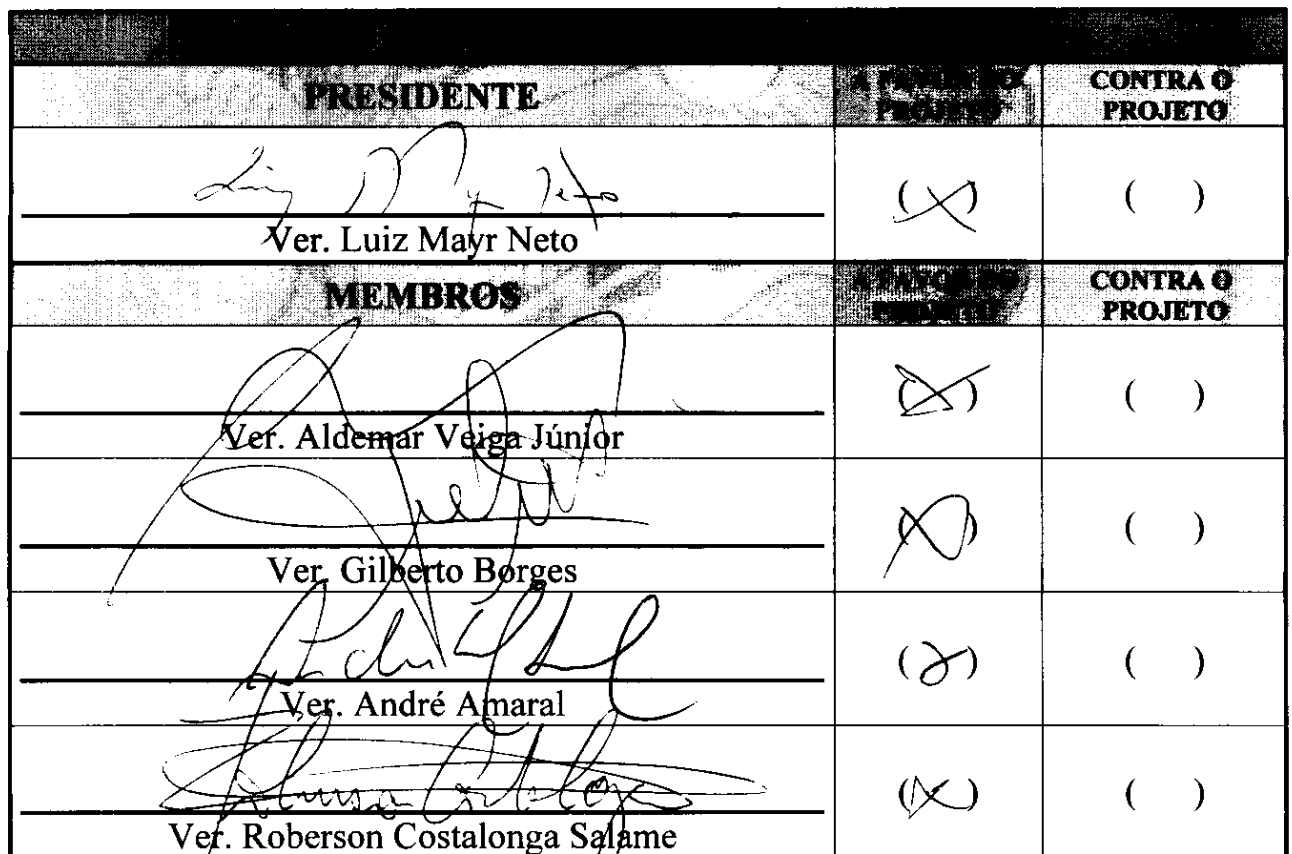 PRESIDENTE
A FAVOR DO PROJETO
CONTRA O PROJETO
Luiz Mayr Neto
(X)
( )
Ver. Luiz Mayr Neto
MEMBROS
A FAVOR DO PROJETO
CONTRA O PROJETO
(X)
( )
Ver. Aldemar Veiga Júnior
(X)
( )
Ver. Gilberto Borges
( )
Ver. André Amaral
(X)
( )
Ver. Roberson Costalonga Salame